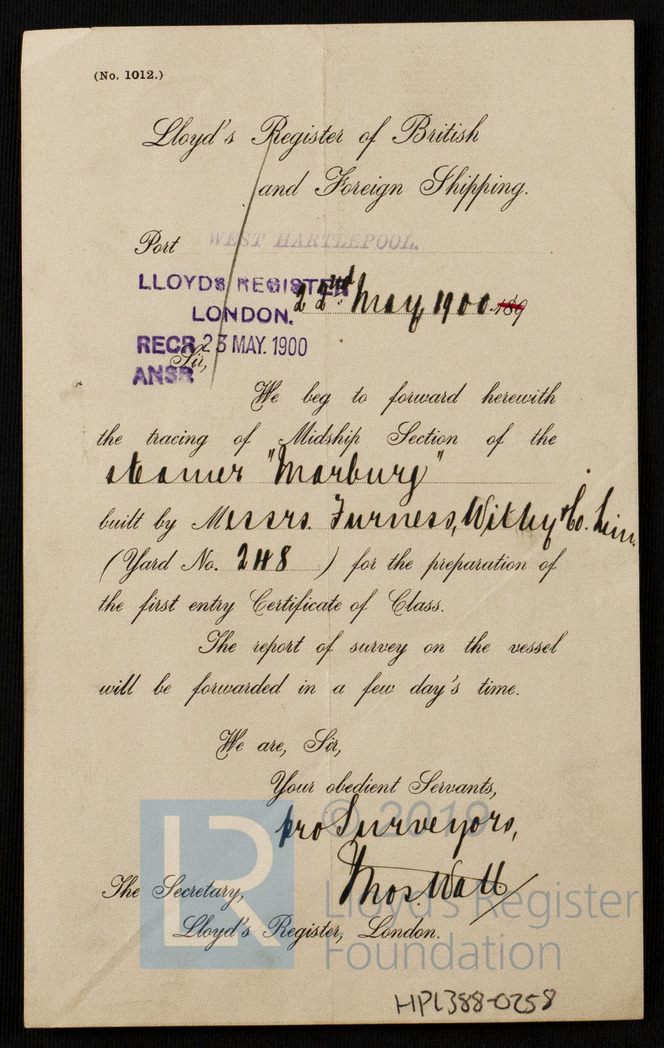 (No. 1012.)
Lloyd's Register of British
and Foreign Shipping.
Port WEST HARTLEPOOL.
LLOYDS REGISTER
LONDON.
22nd May 1900. 189
RECR 23 MAY. 1900
ANSR
Sir,
We beg to forward herewith
the tracing of Midship Section of the
steamer "Marburg"
built by Messrs. Furness, Withy & Co. Lim.
(Yard No. 248) for the preparation of
the first entry Certificate of Class.
The report of survey on the vessel
will be forwarded in a few day's time.
We are, Sir,
Your obedient Servants,
pro Surveyors,
Thos. Watt
The Secretary,
Lloyd's Register, London.
LR
© 2019
Lloyd's Register
Foundation
HPL388-0258